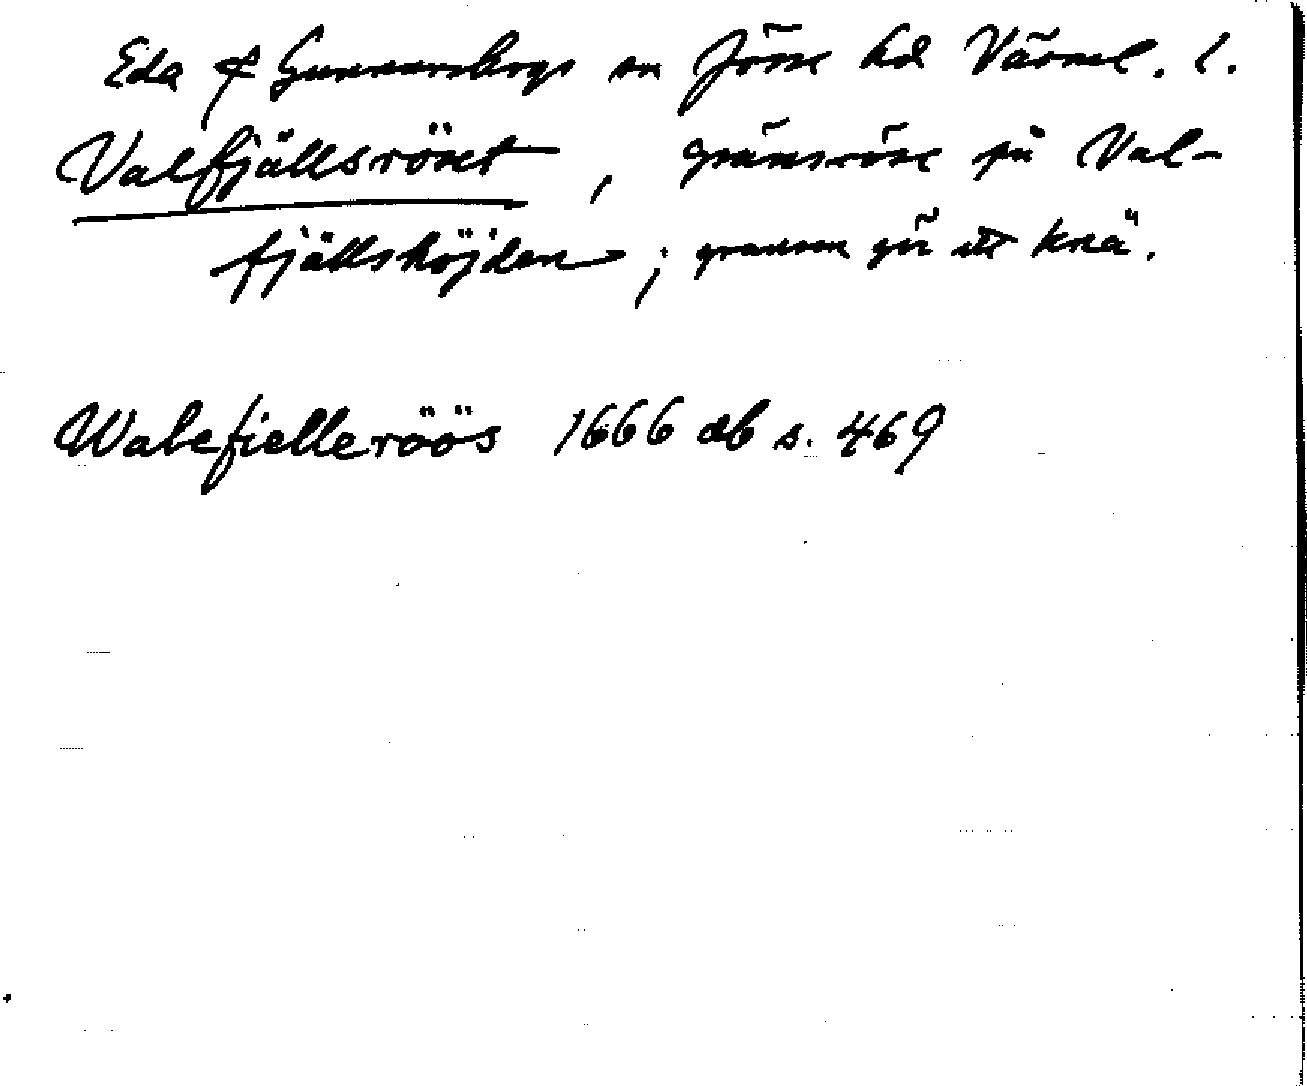 Eda & Gunnarskogs sn Jösse hd Värml. l.
Valfjällsröset, gränsröse på Val-
fjällshöjden; gränsen gör ett knä.
Walefielleröös 1666 db s. 469